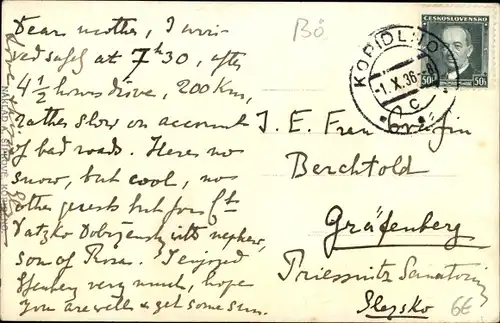 Dear mother, I arri-
ved safely at 7h30, after
4 1/2 hours drive, 200 Km,
rather slow on account
of bad roads. Here no
snow, but cool, no
other guests but for Ct
Vatzko Dobrzensky with nephew,
son of Rosa. I enjoyed
very much, hope
you are well & get some sun.
Bö
ČESKOSLOVENSKO
50h 50h
KOPIDLNO
-1.X.36.-8
c
I. E. Frau Gräfin
Berchtold
Gräfenberg
Priessnitz Sanatorium
Slezsko
6€